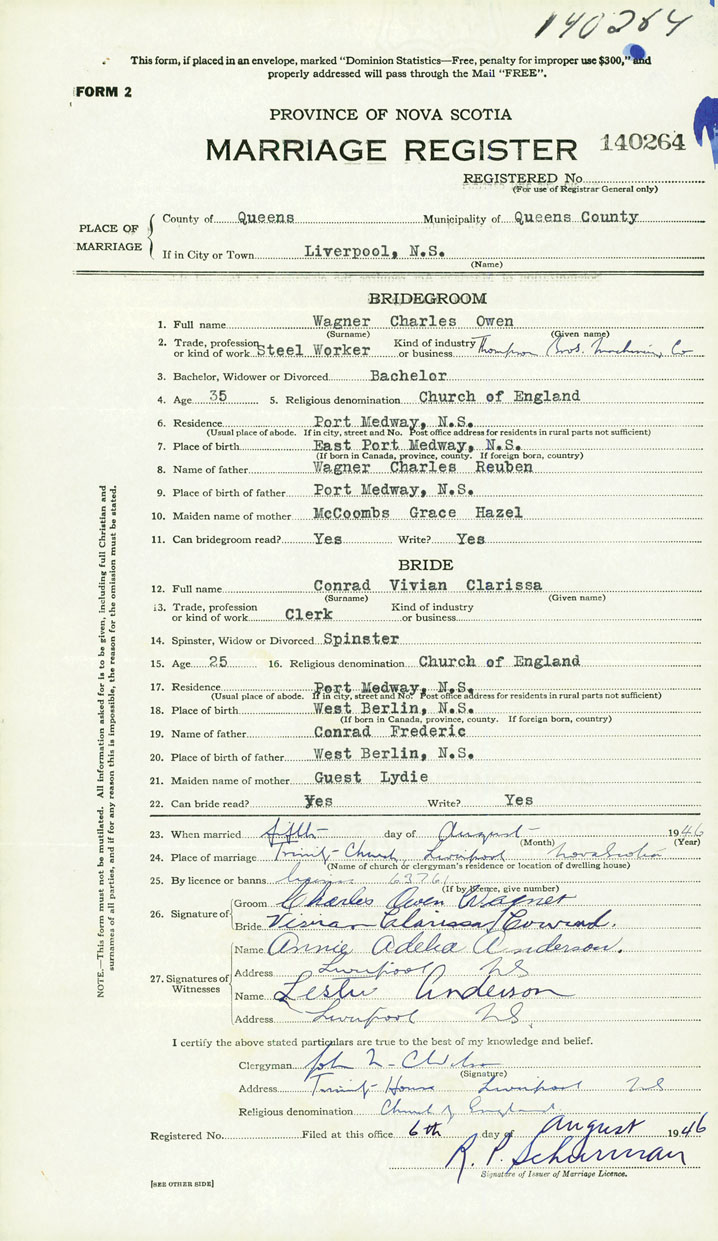 140264
This form, if placed in an envelope, marked "Dominion Statistics—Free, penalty for improper use $300," and
properly addressed will pass through the Mail "FREE".
FORM 2
PROVINCE OF NOVA SCOTIA
MARRIAGE REGISTER 140264
REGISTERED No.
(For use of Registrar General only)
PLACE OF MARRIAGE
County of Queens Municipality of Queens County
If in City or Town Liverpool, N.S.
(Name)
BRIDEGROOM
1. Full name Wagner Charles Owen
(Surname) (Given name)
2. Trade, profession or kind of work Steel Worker Kind of industry or business Thompson Bros. Machining Co
3. Bachelor, Widower or Divorced Bachelor
4. Age 35 5. Religious denomination Church of England
6. Residence Port Medway, N.S.
(Usual place of abode. If in city, street and No. Post office address for residents in rural parts not sufficient)
7. Place of birth East Port Medway, N.S.
(If born in Canada, province, county. If foreign born, country)
8. Name of father Wagner Charles Reuben
9. Place of birth of father Port Medway, N.S.
10. Maiden name of mother McCoombs Grace Hazel
11. Can bridegroom read? Yes Write? Yes
BRIDE
12. Full name Conrad Vivian Clarissa
(Surname) (Given name)
13. Trade, profession or kind of work Clerk Kind of industry or business
14. Spinster, Widow or Divorced Spinster
15. Age 25 16. Religious denomination Church of England
17. Residence Port Medway, N.S.
(Usual place of abode. If in city, street and No. Post office address for residents in rural parts not sufficient)
18. Place of birth West Berlin, N.S.
(If born in Canada, province, county. If foreign born, country)
19. Name of father Conrad Frederic
20. Place of birth of father West Berlin, N.S.
21. Maiden name of mother Guest Lydie
22. Can bride read? Yes Write? Yes
23. When married fifth day of August 1946
(Month) (Year)
24. Place of marriage Trinity Church Liverpool Nova Scotia
(Name of church or clergyman's residence or location of dwelling house)
25. By licence or banns license 63761
(If by licence, give number)
26. Signature of
Groom Charles Owen Wagner
Bride Vivian Clarissa Conrad.
27. Signatures of Witnesses
Name Annie Adelia Anderson.
Address Liverpool NS
Name Leslie Anderson
Address Liverpool NS.
I certify the above stated particulars are true to the best of my knowledge and belief.
Clergyman John
(Signature)
Address Trinity House Liverpool NS
Religious denomination Church of England
Registered No. Filed at this office 6th day of August 1946
R. P. Schurman
Signature of Issuer of Marriage Licence.
[SEE OTHER SIDE]
NOTE.—This form must not be mutilated. All information asked for is to be given, including full Christian and
surnames of all parties, and if for any reason this is impossible, the reason for the omission must be stated.